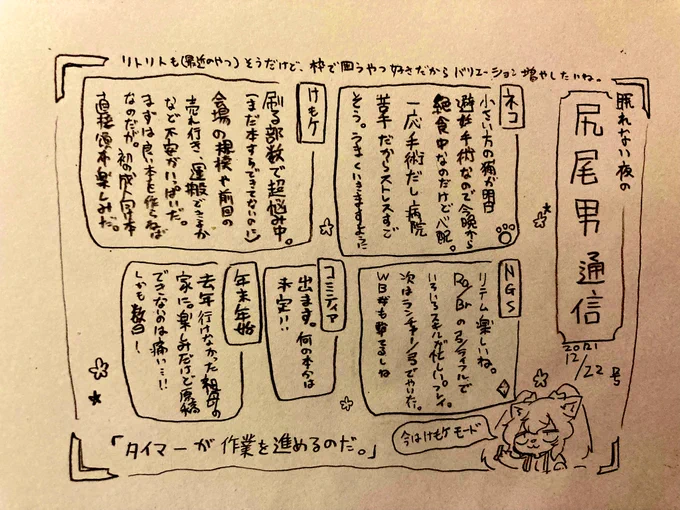 リトリトも(最近のやつ)そうだけど、枠で囲うやつ好きだからバリエーション増やしたいね。
眠れない夜の
尻尾男通信
2021
12/22号
ネコ
小さい方の猫が明日
避妊手術なので今晩から
絶食中なのだけど心配。
一応手術だし病院
苦手だからストレスすご
そう。うまくいきますように
けもケ
刷る部数で超悩み中。
(まだ本すらできてないのに)
会場の規模や前回の
売れ行き、運搬できるか
など不安がいっぱいだ。
まずは良い本を作らねば
なのだが。初の
直接
本楽しみだ。
NGS
リテム楽しいね。
Ra/Brの
ライフルで
いろいろスキルが忙しいプレイ。
次はランチャー/弓でやいた。
WBがも撃てるしね
コミティア
出ます。何の本かは
未定!!
年末年始
去年行けなかった祖母の
家に。楽しみだけど原稿
できないのは痛い…!!
しかも数日!
今はけもケモード
「タイマーが作業を進めるのだ。」